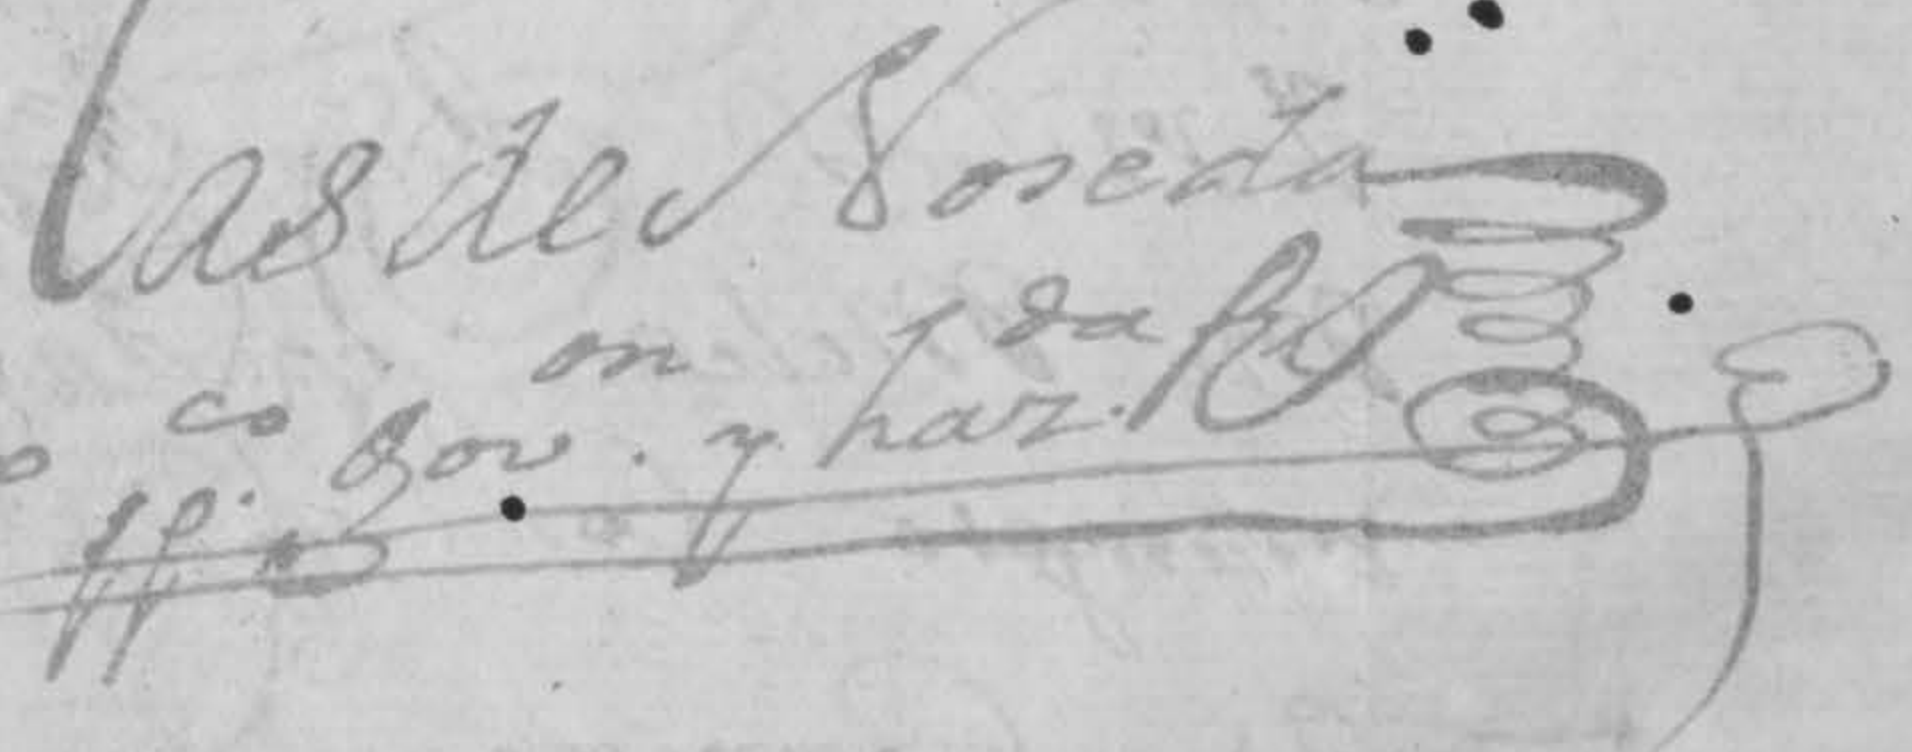 Las de Noseda
o ff.co Gov.on y haz.da R